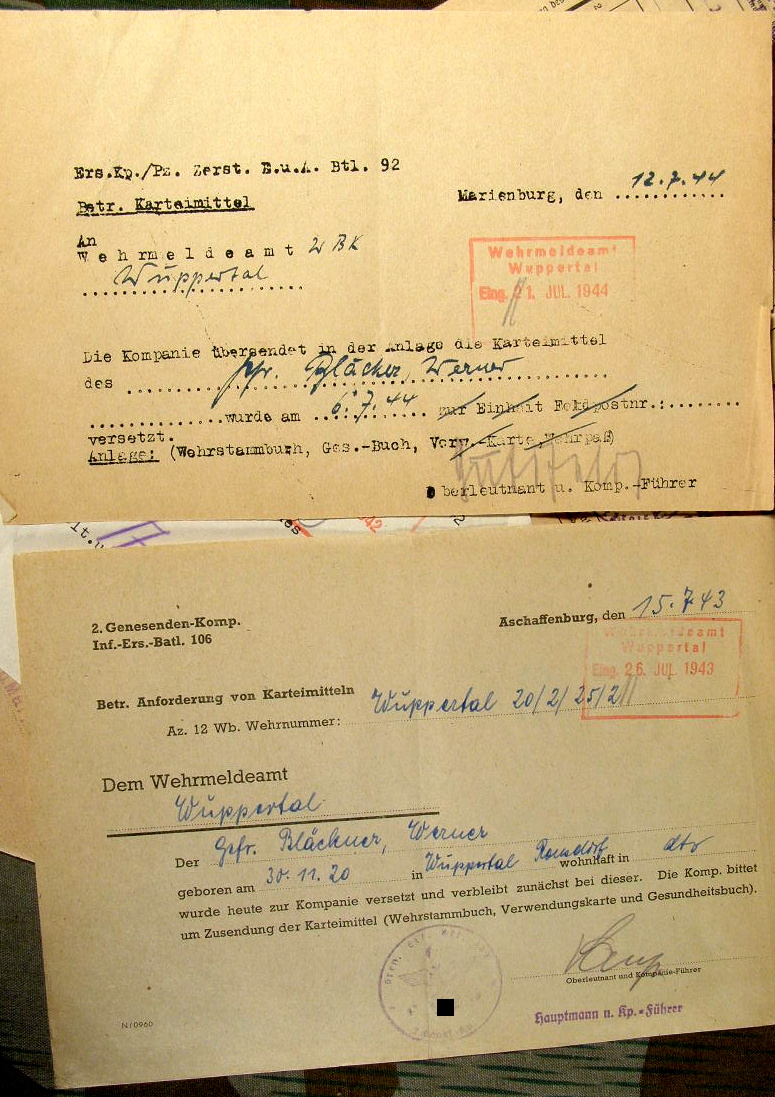 Ers.Kp./Pz. Zerst. E.u.A. Btl. 92
Marienburg, den 12.7.44
Betr. Karteimittel
An
Wehrmeldeamt WBK
Wuppertal
Wehrmeldeamt
Wuppertal
Eing. 21. JUL. 1944
Die Kompanie übersendet in der Anlage die Karteimittel
des Gfr. Bläcker, Werner
wurde am 6.7.44 zur Einheit Feldpostnr.:
versetzt.
Anlage: (Wehrstammbuch, Ges.-Buch, Verw.-Karte, Wehrpaß)
Oberleutnant u. Komp.-Führer
2. Genesenden-Komp.
Inf.-Ers.-Batl. 106
Aschaffenburg, den 15.7.43
Wehrmeldeamt
Wuppertal
Eing. 26. JUL. 1943
Betr. Anforderung von Karteimitteln
Az. 12 Wb. Wehrnummer: Wuppertal 20/2/25/2
Dem Wehrmeldeamt
Wuppertal
Der Gefr. Bläckner, Werner
geboren am 30.11.20 in Wuppertal Ronsdorf wohnhaft in dto
wurde heute zur Kompanie versetzt und verbleibt zunächst bei dieser. Die Komp. bittet
um Zusendung der Karteimittel (Wehrstammbuch, Verwendungskarte und Gesundheitsbuch).
Oberleutnant und Kompanie-Führer
Hauptmann u. Kp.-Führer
N/0960